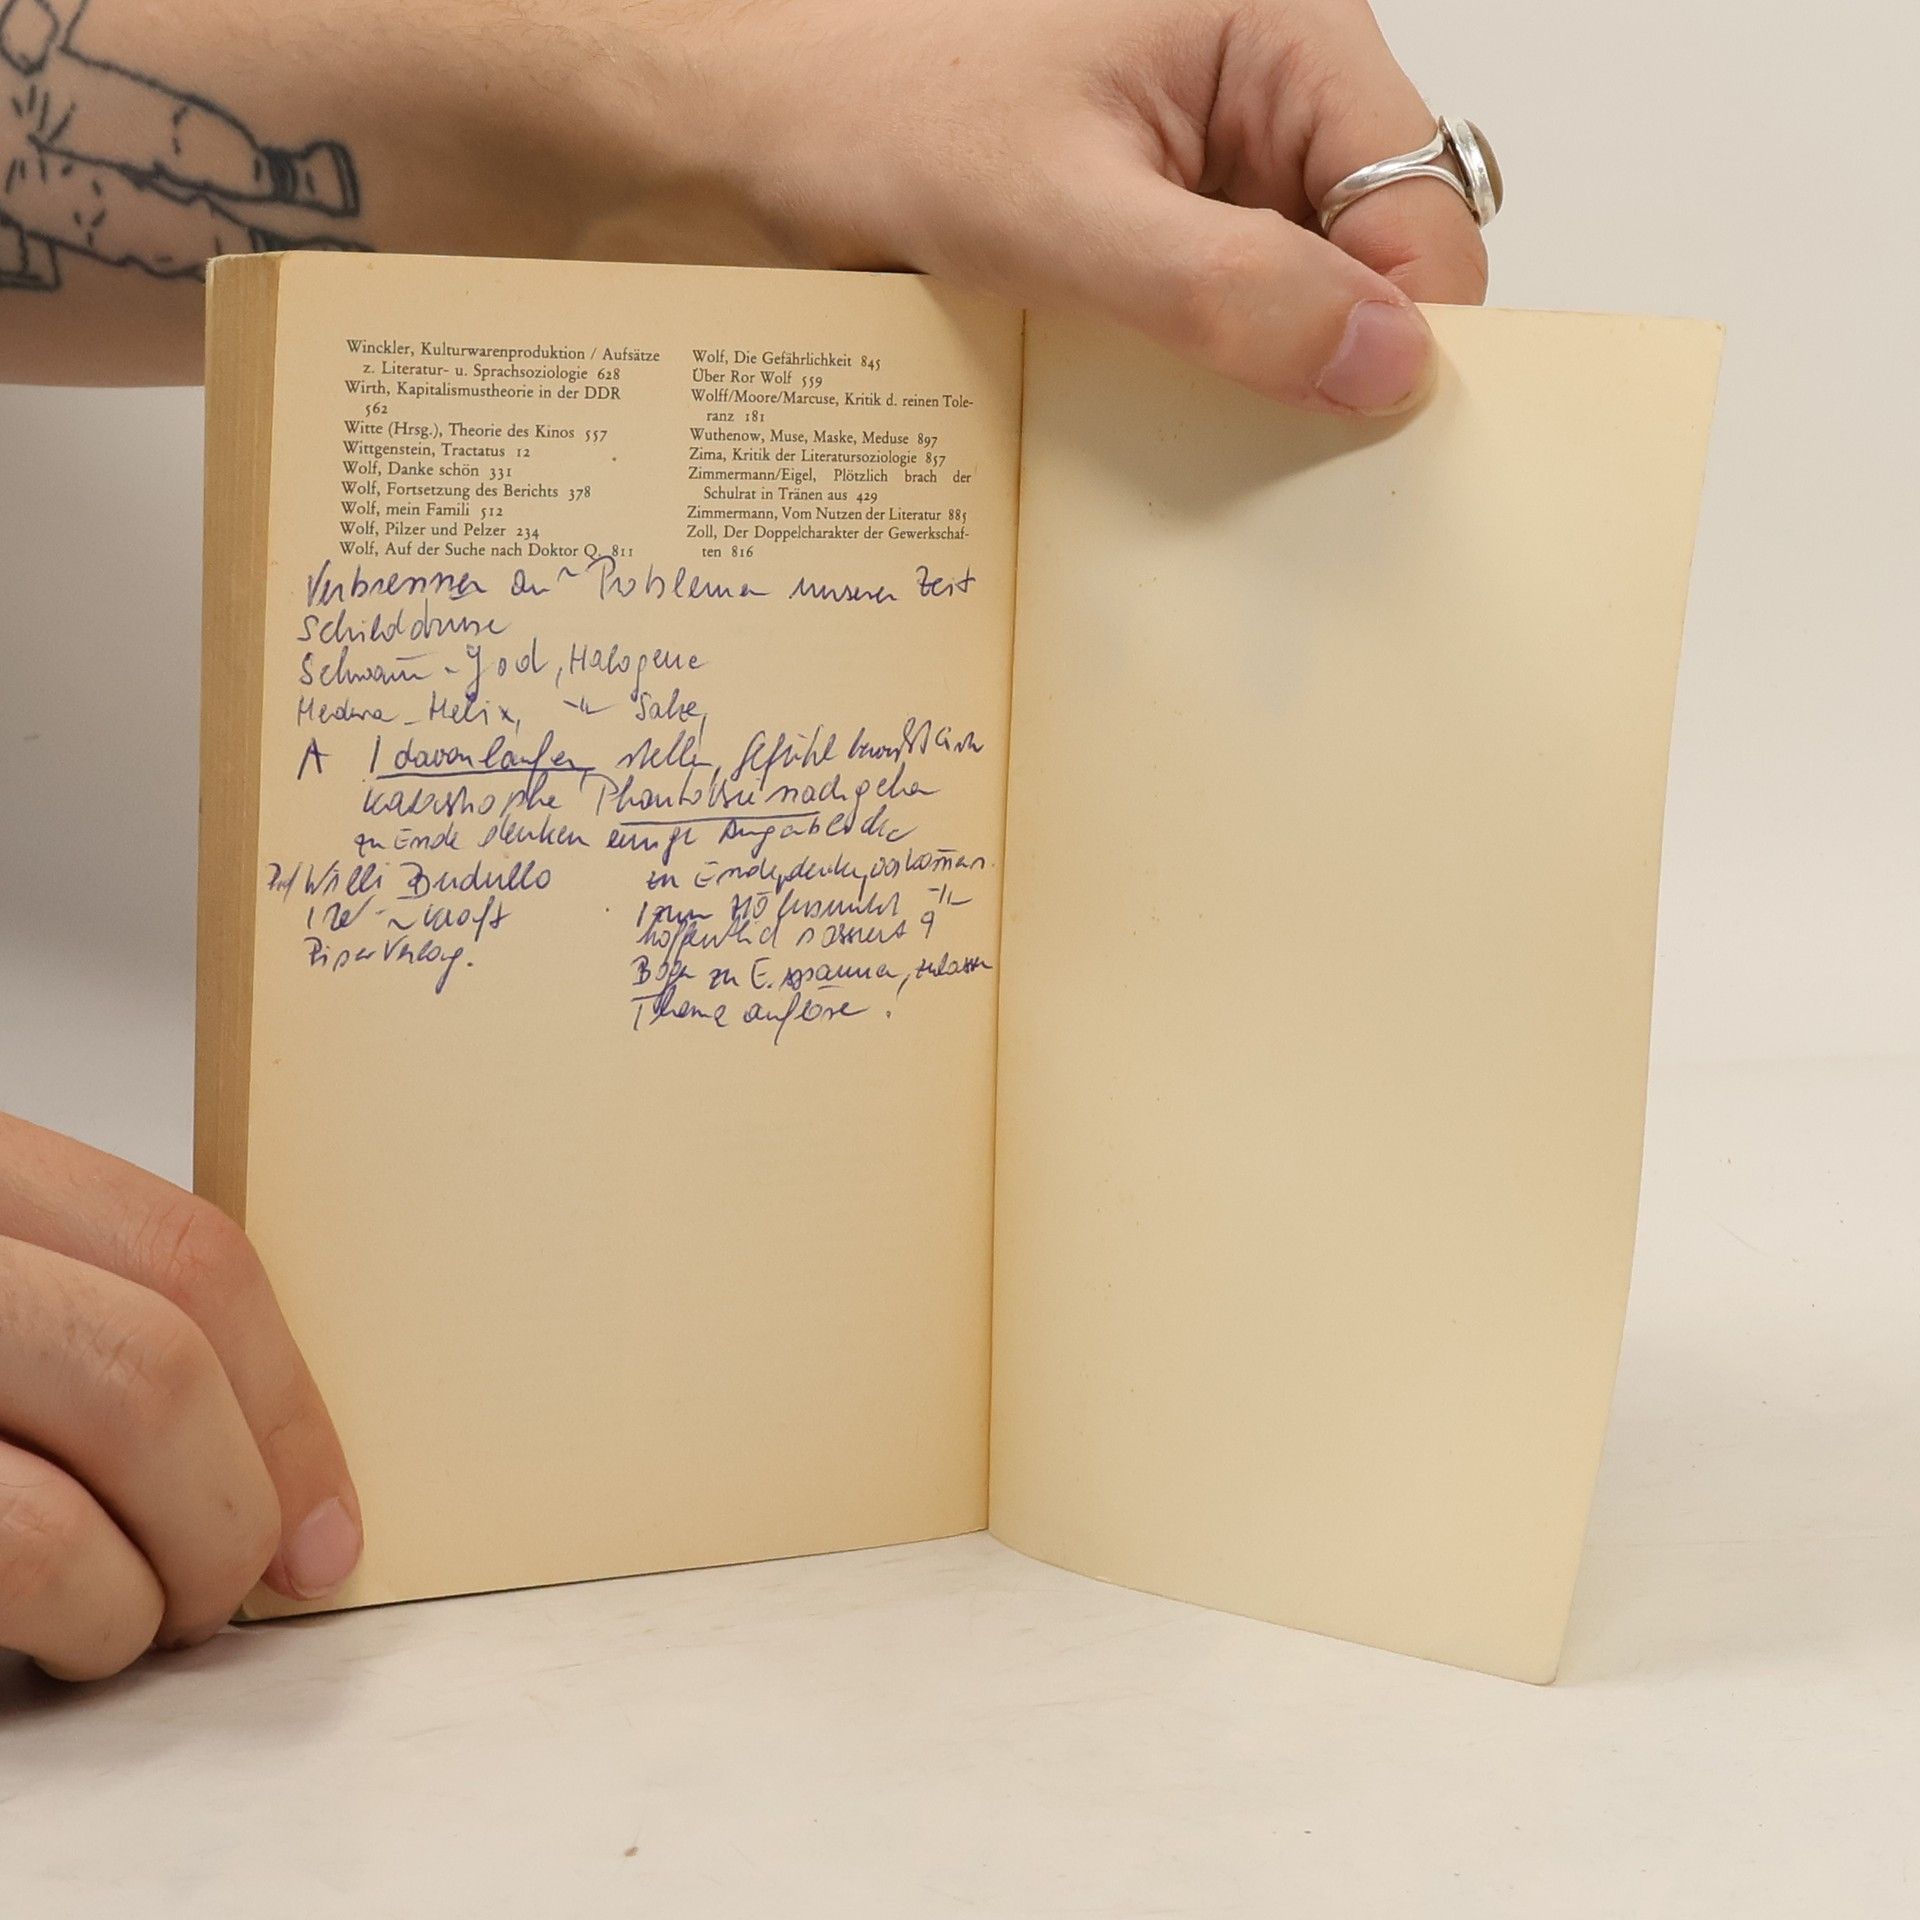 Winckler, Kulturwarenproduktion / Aufsätze
z. Literatur- u. Sprachsoziologie 628
Wirth, Kapitalismustheorie in der DDR
562
Witte (Hrsg.), Theorie des Kinos 557
Wittgenstein, Tractatus 12
Wolf, Danke schön 331
Wolf, Fortsetzung des Berichts 378
Wolf, mein Famili 512
Wolf, Pilzer und Pelzer 234
Wolf, Auf der Suche nach Doktor Q. 811
Wolf, Die Gefährlichkeit 845
Über Ror Wolf 559
Wolff/Moore/Marcuse, Kritik d. reinen Tole-
ranz 181
Wuthenow, Muse, Maske, Meduse 897
Zima, Kritik der Literatursoziologie 857
Zimmermann/Eigel, Plötzlich brach der
Schulrat in Tränen aus 429
Zimmermann, Vom Nutzen der Literatur 885
Zoll, Der Doppelcharakter der Gewerkschaf-
ten 816
Verbrennen an Problemen unserer Zeit
Schilddrüse
Jod, Halogene
Helix, Salze,
A 1 davonlaufen, stellen, Gefühl
Katastrophe Phantasie nachgehen
zu Ende denken einige
Willi
Kraft
Piper Verlag.
zu Ende denken
hoffentlich passiert
zu E. spannen,
Thema auflösen.